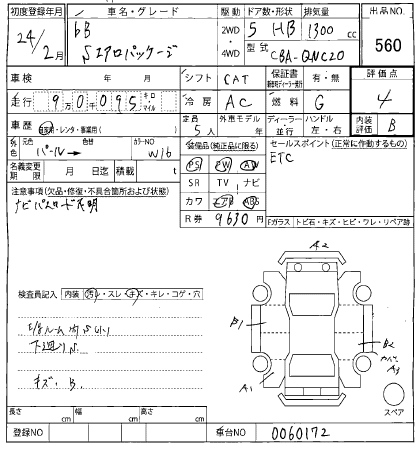 初度登録年月 車名・グレード 駆動 ドア数・形状 排気量 出品NO.
24/2月 bB 2WD 5 HB 1300 cc 560
Sエアロパッケージ 4WD 型式 CBA-QNC20
車検 年 月 シフト CAT 保証書 有・無 評価点
走行 9万0千095 キロ・マイル 冷房 AC 燃料 G 4
車歴 自家用・レンタ・事業用( ) 定員 5人 外車モデル 年 ディーラー 並行 ハンドル 左・右 内装評価 B
外色 元色 パール 色替 カラーNO W16 装備品(純正品に限る) セールスポイント(正常に作動するもの)
名義変更期限 月 日迄 積載 t PS PW AW ETC
注意事項(欠品・修復・不具合箇所および状態) SR TV ナビ
ナビパスワード不明 カワ エアB ABS
R券 9630円 Fガラス トビ石・キズ・ヒビ・ワレ・リペア跡
A2
検査員記入 内装 汚レ・スレ・キズ・キレ・コゲ・穴
B1 B2
E/gルーム内S小
下廻りS A1 A3
キズ・B. スペア
長さ cm 幅 cm 高さ cm
登録NO 車台NO 0060172